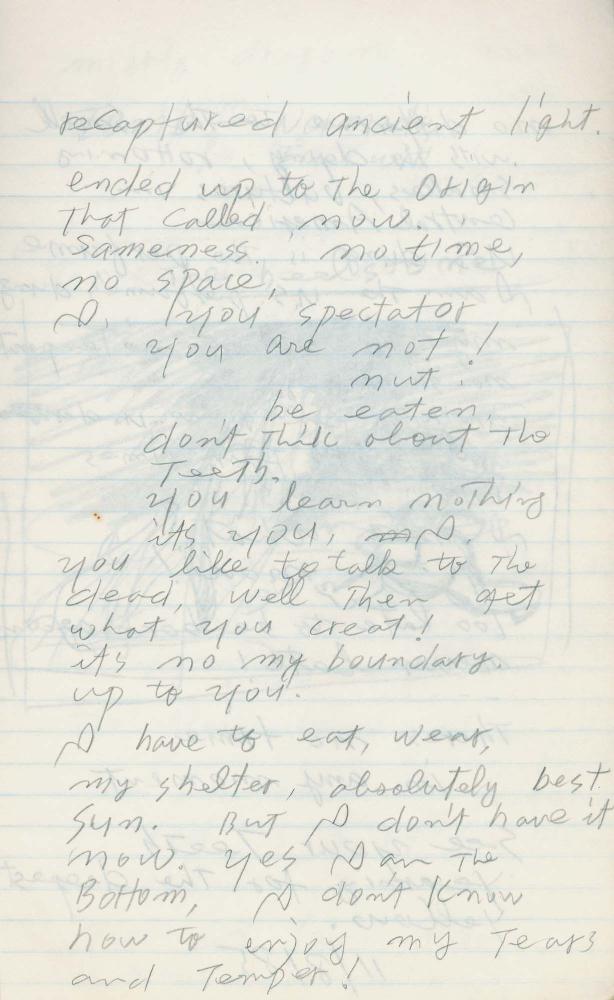 recaptured ancient light.
ended up to the Origin
That called now.
Sameness. no time,
no space,
I. you spectator
you are not!
nut.
be eaten.
don't think about the
Teeth.
you learn nothing
its you, I.
you like to talk to the
dead, well Then get
what you creat!
it's no my boundary.
up to you.
I have to eat, wear,
my shelter, absolutely best
Sun. But I don't have it
now. yes I am The
Bottom, I don't know
how to enjoy my Tears
and Temper!